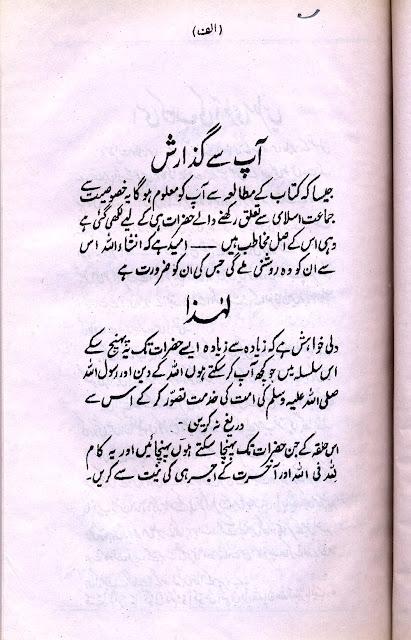 (الف)
آپ سے گذارش
جیسا کہ کتاب کے مطالعہ سے آپ کو معلوم ہوگا یہ خصوصیت سے
جماعت اسلامی سے تعلق رکھنے والے حضرات ہی کے لیے لکھی گئی ہے
وہی اس کے اصل مخاطب ہیں —— امید ہے کہ انشاء اللہ اس
سے ان کو وہ روشنی ملے گی جس کی ان کو ضرورت ہے
لہٰذا
دلی خواہش ہے کہ زیادہ سے زیادہ ایسے حضرات تک یہ پہنچ سکے
اس سلسلہ میں جو کچھ آپ کر سکتے ہوں اللہ کے دین اور رسول اللہ
صلی اللہ علیہ وسلم کی امت کی خدمت تصور کر کے اس سے
دریغ نہ کریں۔
اس حلقہ کے جن حضرات تک پہنچا سکتے ہوں پہنچائیں اور یہ کام
للہ فی اللہ اور آخرت کے اجر ہی کی نیت سے کریں۔